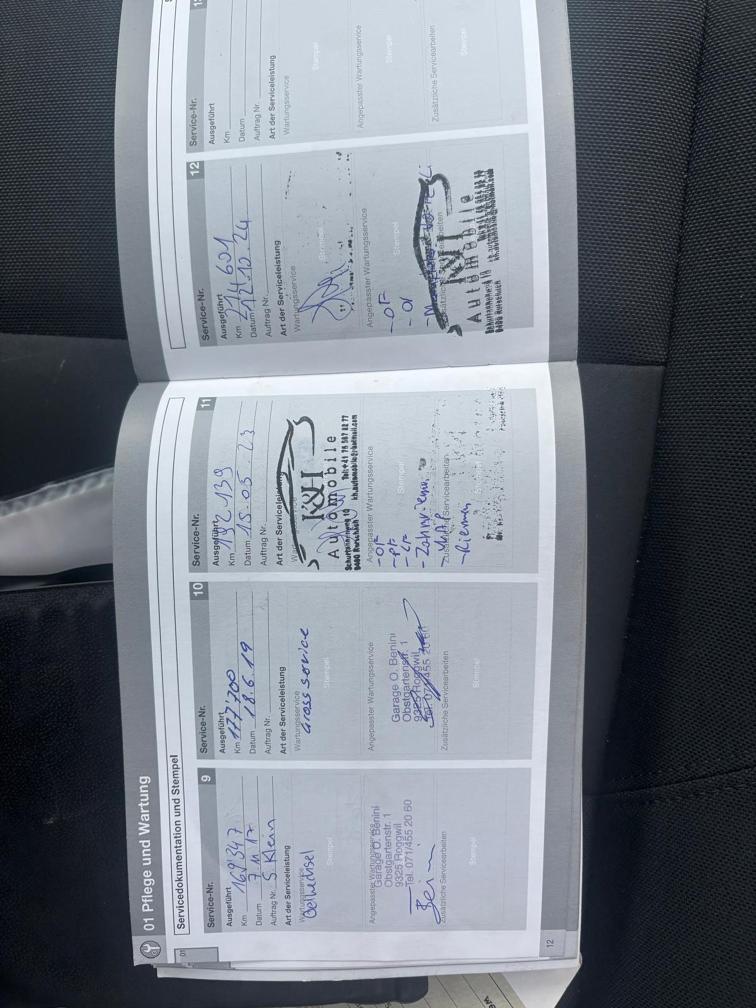 01 Pflege und Wartung
Servicedokumentation und Stempel
01
Service-Nr. 9
Ausgeführt
Km 169'347
Datum 7.11.17
Auftrag Nr. S. Klein
Art der Serviceleistung
Wartungsservice
Oelwechsel
Stempel
Angepasster Wartungsservice
Garage O. Benini
Obstgartenstr. 1
9325 Roggwil
Tel. 071/455 20 60
Zusätzliche Servicearbeiten
Stempel
12
Service-Nr. 10
Ausgeführt
Km 177'700
Datum 18.6.19
Auftrag Nr.
Art der Serviceleistung
Wartungsservice
Gross service
Stempel
Angepasster Wartungsservice
Garage O. Benini
Obstgartenstr. 1
9325 Roggwil
Tel. 071/455 20 60
Zusätzliche Servicearbeiten
Stempel
Service-Nr. 11
Ausgeführt
Km 192 139
Datum 15.05.23
Auftrag Nr.
Art der Serviceleistung
K&H
Automobile
9400 Rorschach
Angepasster Wartungsservice
Stempel
-OF
-PF
-LF
-Zahnriemen
Zusätzliche Servicearbeiten
-WAP
-Riemen
Service-Nr. 12
Ausgeführt
Km 214 601
Datum 12.10.24
Auftrag Nr.
Art der Serviceleistung
Wartungsservice
Stempel
Angepasster Wartungsservice
Stempel
-OF
-Öl
Zusätzliche Servicearbeiten
K&H
Automobile
9400 Rorschach
Service-Nr.
Ausgeführt
Km
Datum
Auftrag Nr.
Art der Serviceleistung
Wartungsservice
Stempel
Angepasster Wartungsservice
Stempel
Zusätzliche Servicearbeiten
Stempel